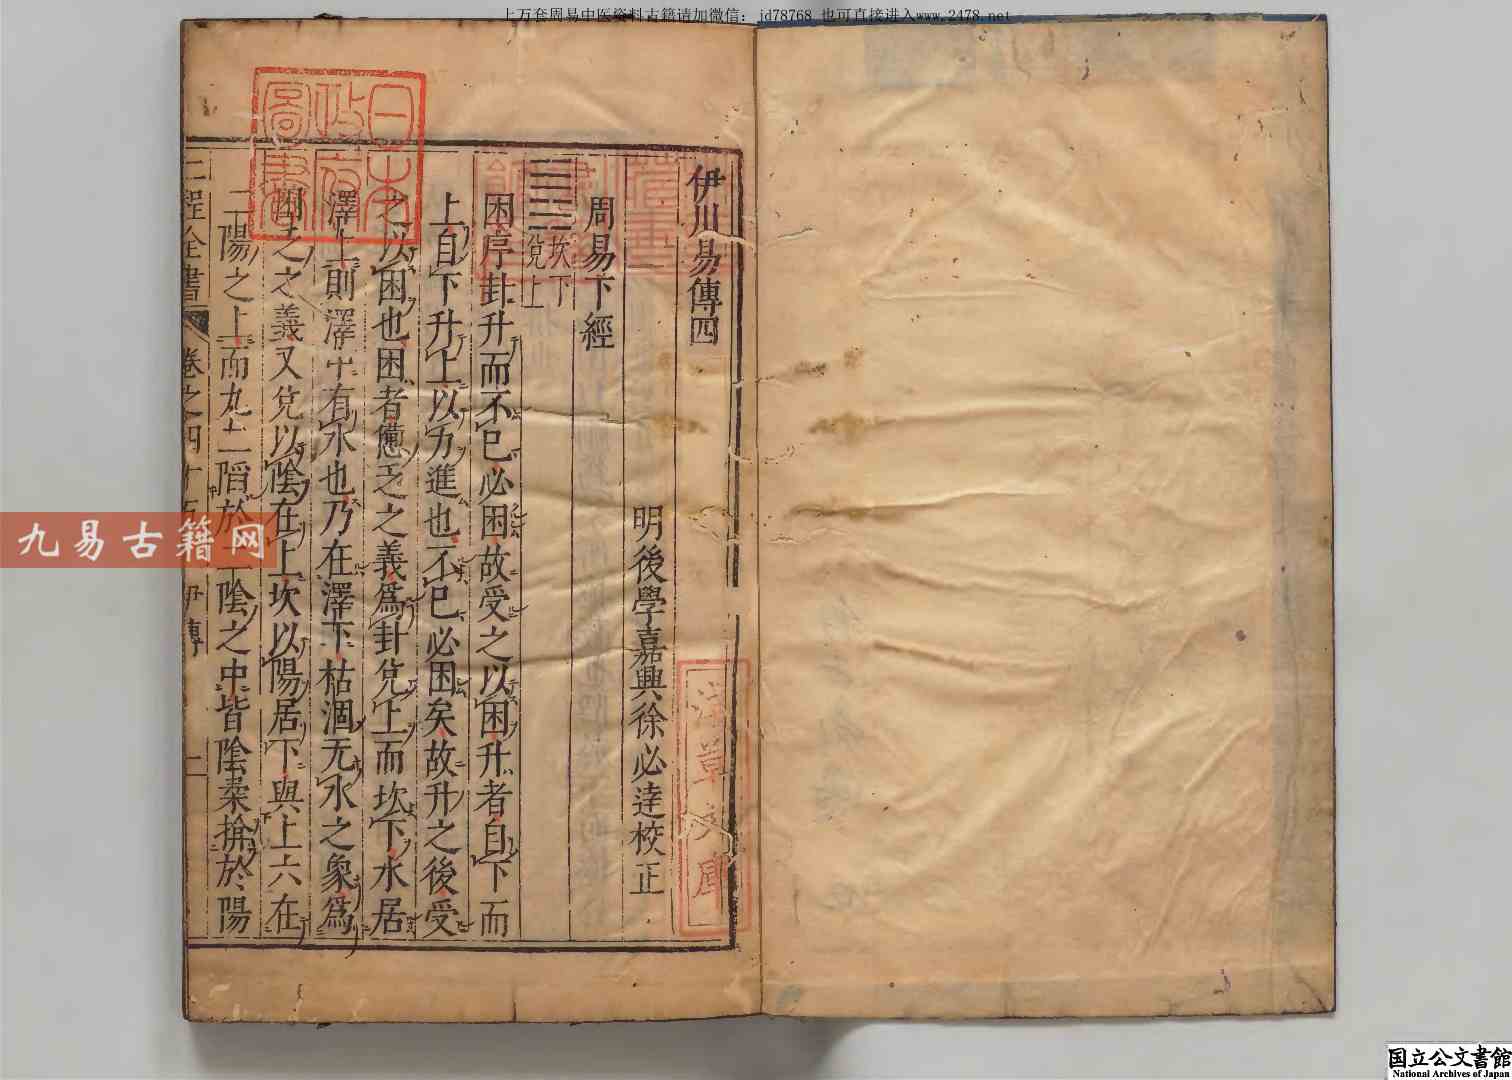 上万套周易中医资料古籍请加微信： jd78768 也可直接进入www.2478.net
伊川易傳四
明後學嘉興徐必達校正
周易下經
坎下
兌上
困序卦升而不已必困故受之以困升者自下而
上自下升上以力進也不已必困矣故升之後受
之以困也困者憊乏之義爲卦兌上而坎下水居
澤上則澤中有水也乃在澤下枯涸无水之象爲
困乏之義又兌以陰在上坎以陽居下與上六在
二陽之上而九二陷於二陰之中皆陰柔揜於陽
二程全書
卷之四十
傳
日本
政府
圖書
淺草文庫
九易古籍网
国立公文書館
National Archives of Japan